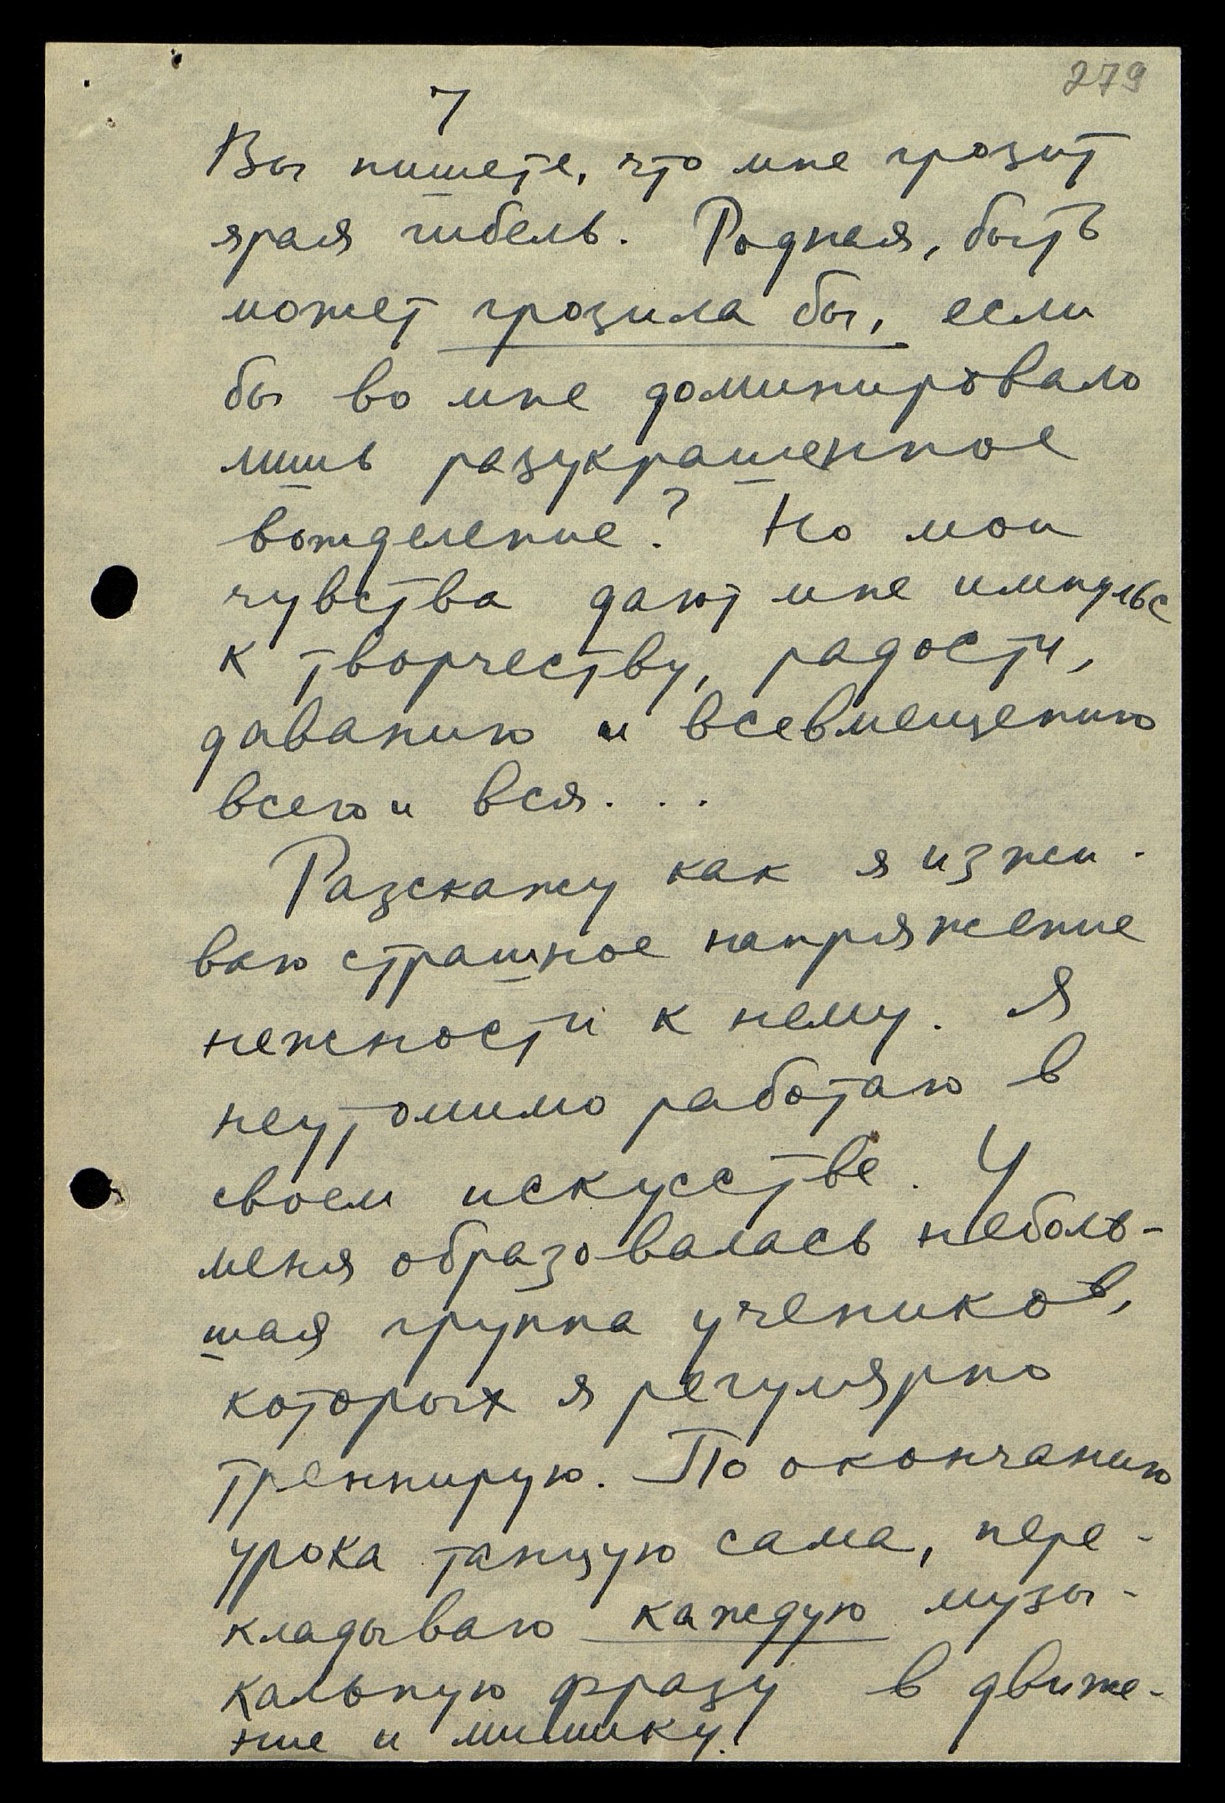 279
7
Вы пишете, что мне грозит
ярая гибель. Родная, быть
может грозила бы, если
бы во мне доминировало
лишь разукрашенное
вожделение? Но мои
чувства дают мне импульс
к творчеству, радости,
даванию и всевмещению
всего и вся...
Разскажу как я изжи-
ваю страшное напряжение
нежности к нему. Я
неутомимо работаю в
своем искусстве. У
меня образовалась неболь-
шая группа учеников,
которых я регулярно
тренирую. По окончанию
урока танцую сама, пере-
кладываю каждую музы-
кальную фразу в движе-
ние и мимику.